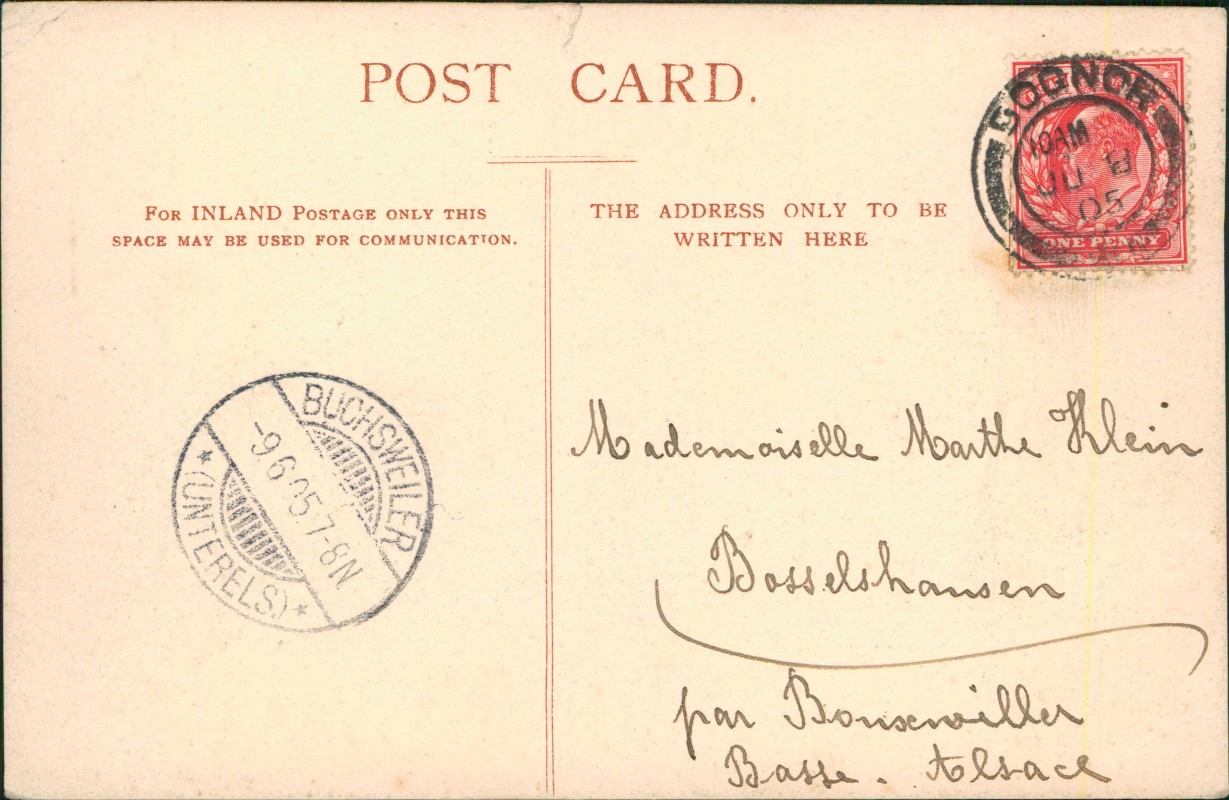 POST CARD.
FOR INLAND POSTAGE ONLY THIS
SPACE MAY BE USED FOR COMMUNICATION.
THE ADDRESS ONLY TO BE
WRITTEN HERE
BOGNOR
10 AM
JU 8
05
ONE PENNY
BUCHSWEILER
-9.6.05.7-8N
* (UNTERELS) *
Mademoiselle Marthe Klein
Bosselshausen
par Bouxwiller
Basse-Alsace